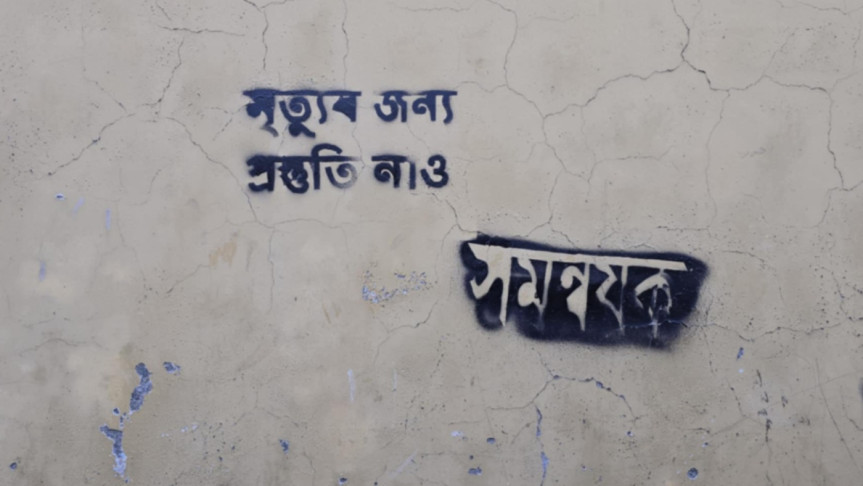 মৃত্যুৰ জন্য
প্রস্তুতি নাও
সমন্বয়ক